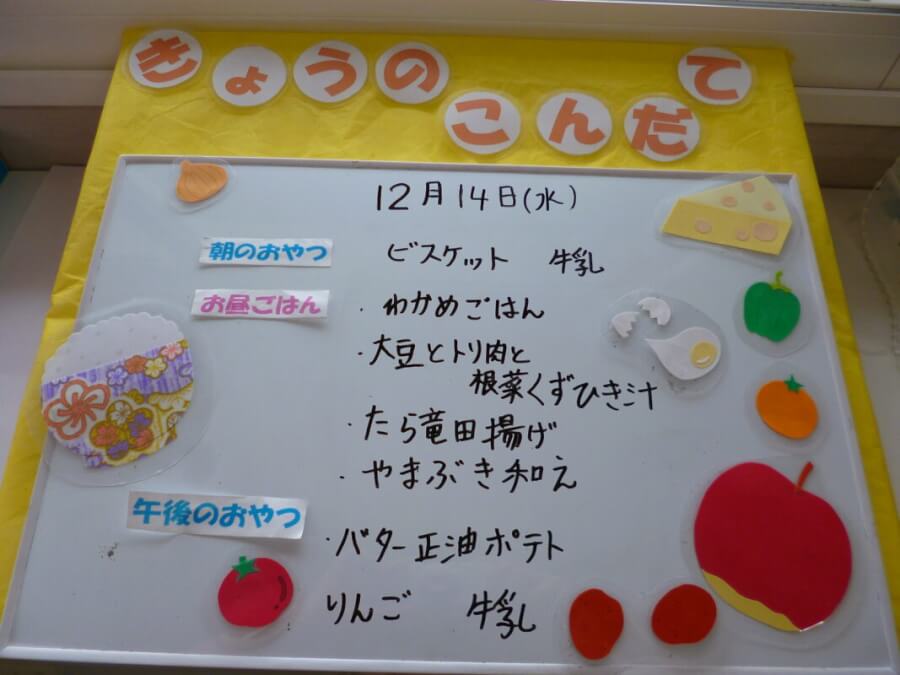 きょうの
こんだて
12月14日(水)
朝のおやつ ビスケット 牛乳
お昼ごはん ・わかめごはん
・大豆とトリ肉と
根菜くずひき汁
・たら竜田揚げ
・やまぶき和え
午後のおやつ ・バター正油ポテト
りんご 牛乳